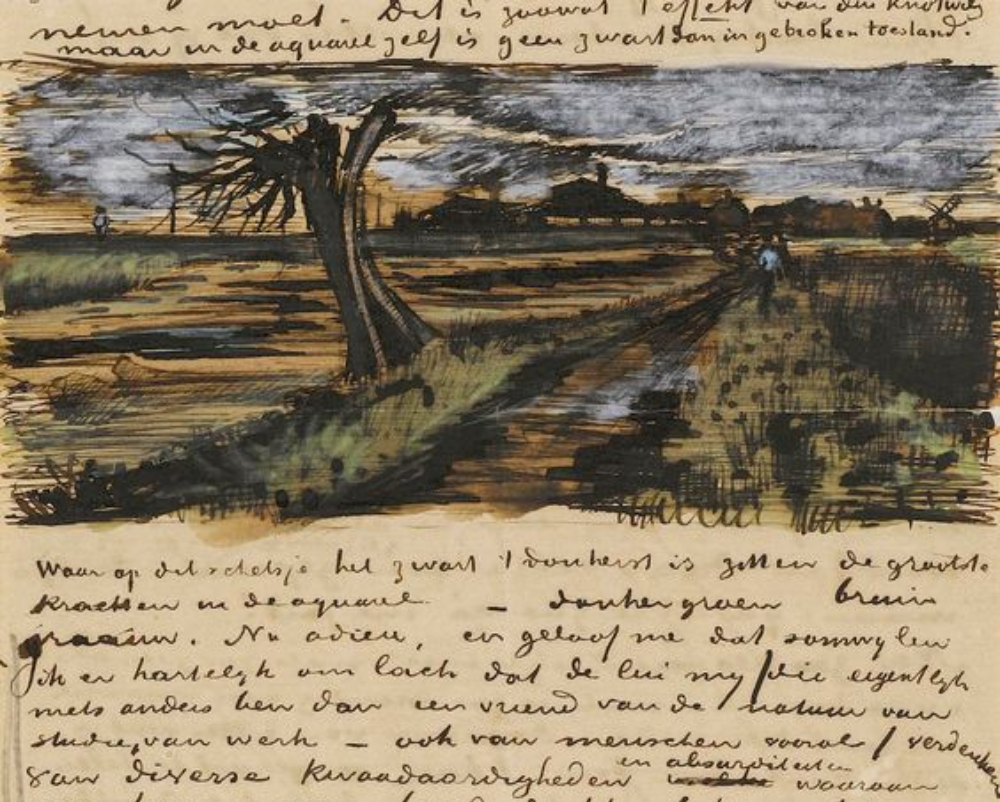 nemen moet. Dit is zoowat 't effekt van den knotwilg
maar in de aquarel zelf is geen zwart dan in gebroken toestand.
Waar op dit schetsje het zwart 't donkerst is zitten de grootste
krachten in de aquarel – donkergroen bruin
graauw. Nu adieu, en geloof me dat somwylen
ik er hartelyk om lach dat de lui my /die eigentlyk
niets anders ben dan een vriend van de natuur van
studie, van werk – ook van menschen vooral/ verdenken
van diverse kwaadaardigheden en absurditeiten waarvan